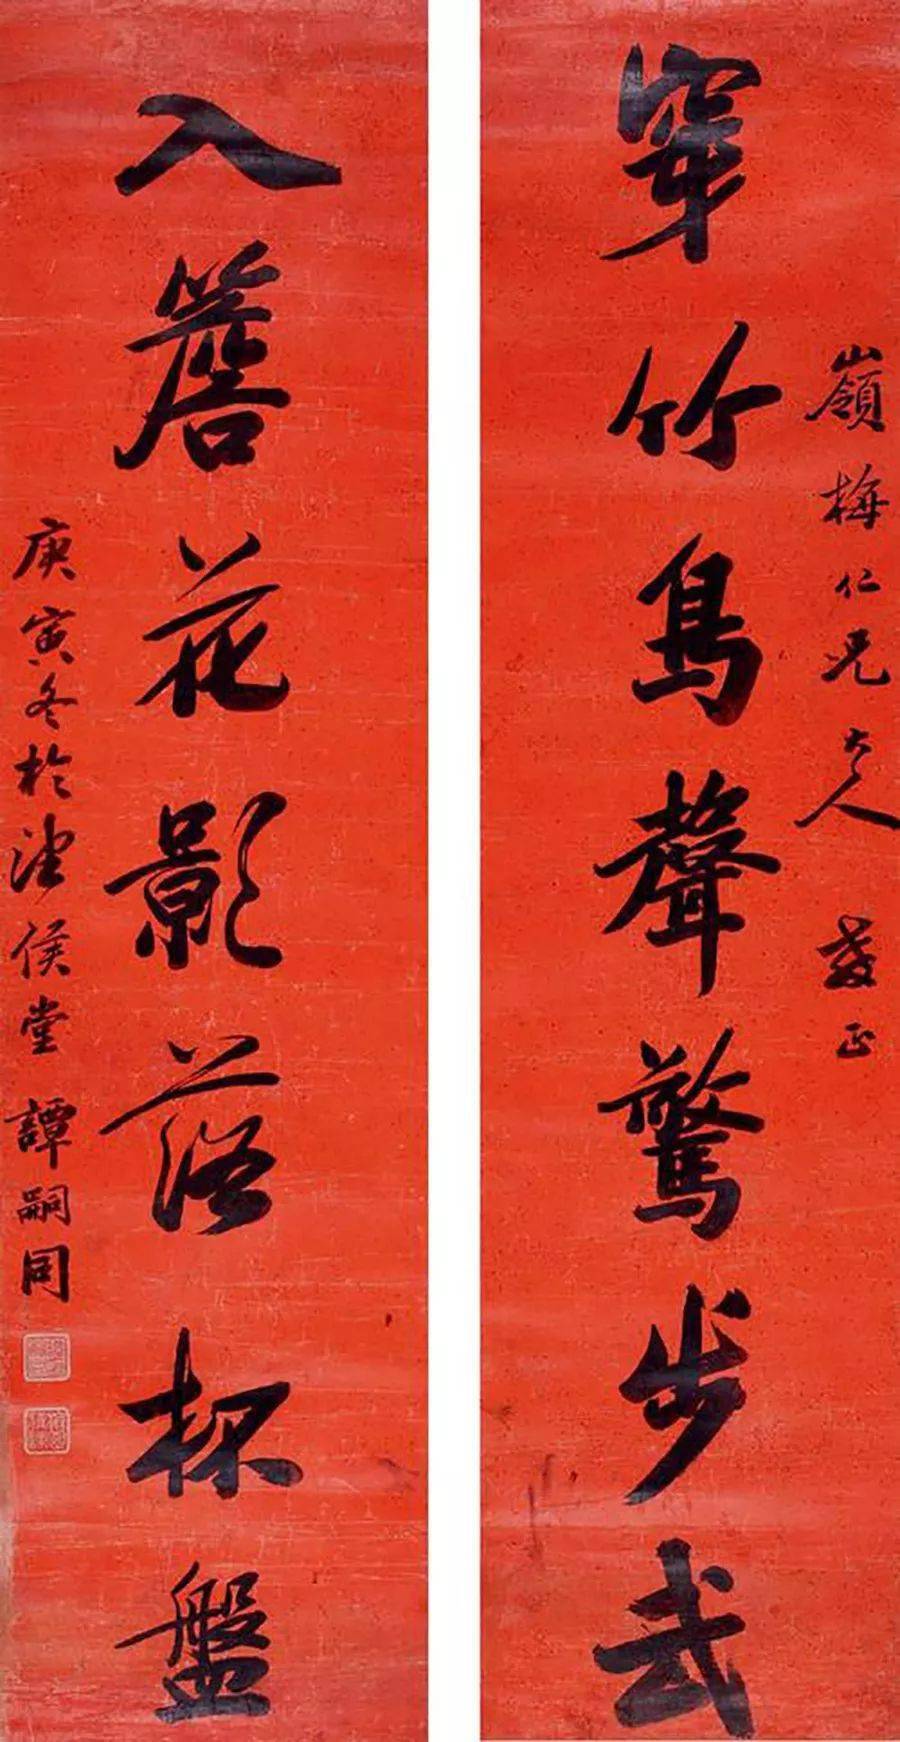 嶺梅仁兄大人教正
穿竹鳥聲驚步武
入簷花影落杯盤
庚寅冬於侯堂 譚嗣同